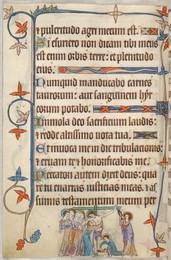 et pulcritudo agri mecum est.
Si esuriero non dicam tibi meus
est enim orbis terre: et plenitudo
eius.
Numquid manducabo carnes
taurorum: aut sanguinem hyr
corum potabo.
Immola deo sacrificium laudis:
et redde altissimo uota tua.
Et inuoca me in die tribulationis:
et eruam te et honorificabis me.
Peccatori autem dixit deus: qua
re tu enarras iusticias meas et as
sumis testamentum meum per